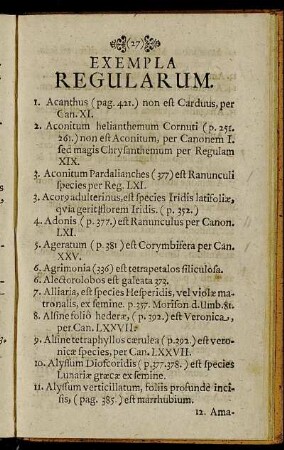 (27)
EXEMPLA
REGULARUM.
1. Acanthus (pag. 421.) non est Carduus, per
Can. XI.
2. Aconitum helianthemum Cornuti (p. 251.
261.) non est Aconitum, per Canonem I.
sed magis Chrysanthemum per Regulam
XIX.
3. Aconitum Pardalianches (377) est Ranunculi
species per Reg. LXI.
3. Acorg adulterinus, est species Iridis latifoliæ,
qvia gerit florem Iridis. (p. 352.)
4. Adonis (p. 377.) est Ranunculus per Canon.
LXI.
5. Ageratum (p. 381) est Corymbifera per Can.
XXV.
6. Agrimonia (336) est tetrapetalos siliculosa.
6. Alectorolobos est galeata 372.
7. Alliaria, est species Hesperidis, vel violæ ma-
tronalis, ex semine. p. 357. Morison d. Umb. 81.
8. Alsine folio hederæ, (p. 392.) est Veronica,
per Can. LXXVII.
9. Alsine tetraphyllos cærulea (p. 292.) est vero-
nicæ species, per Can. LXXVII.
10. Alyssum Dioscoridis (p. 377. 378.) est species
Lunariæ græcæ ex semine.
11. Alyssum verticillatum, foliis profunde inci-
sis, (pag. 385.) est marrhubium.
12. Ama-